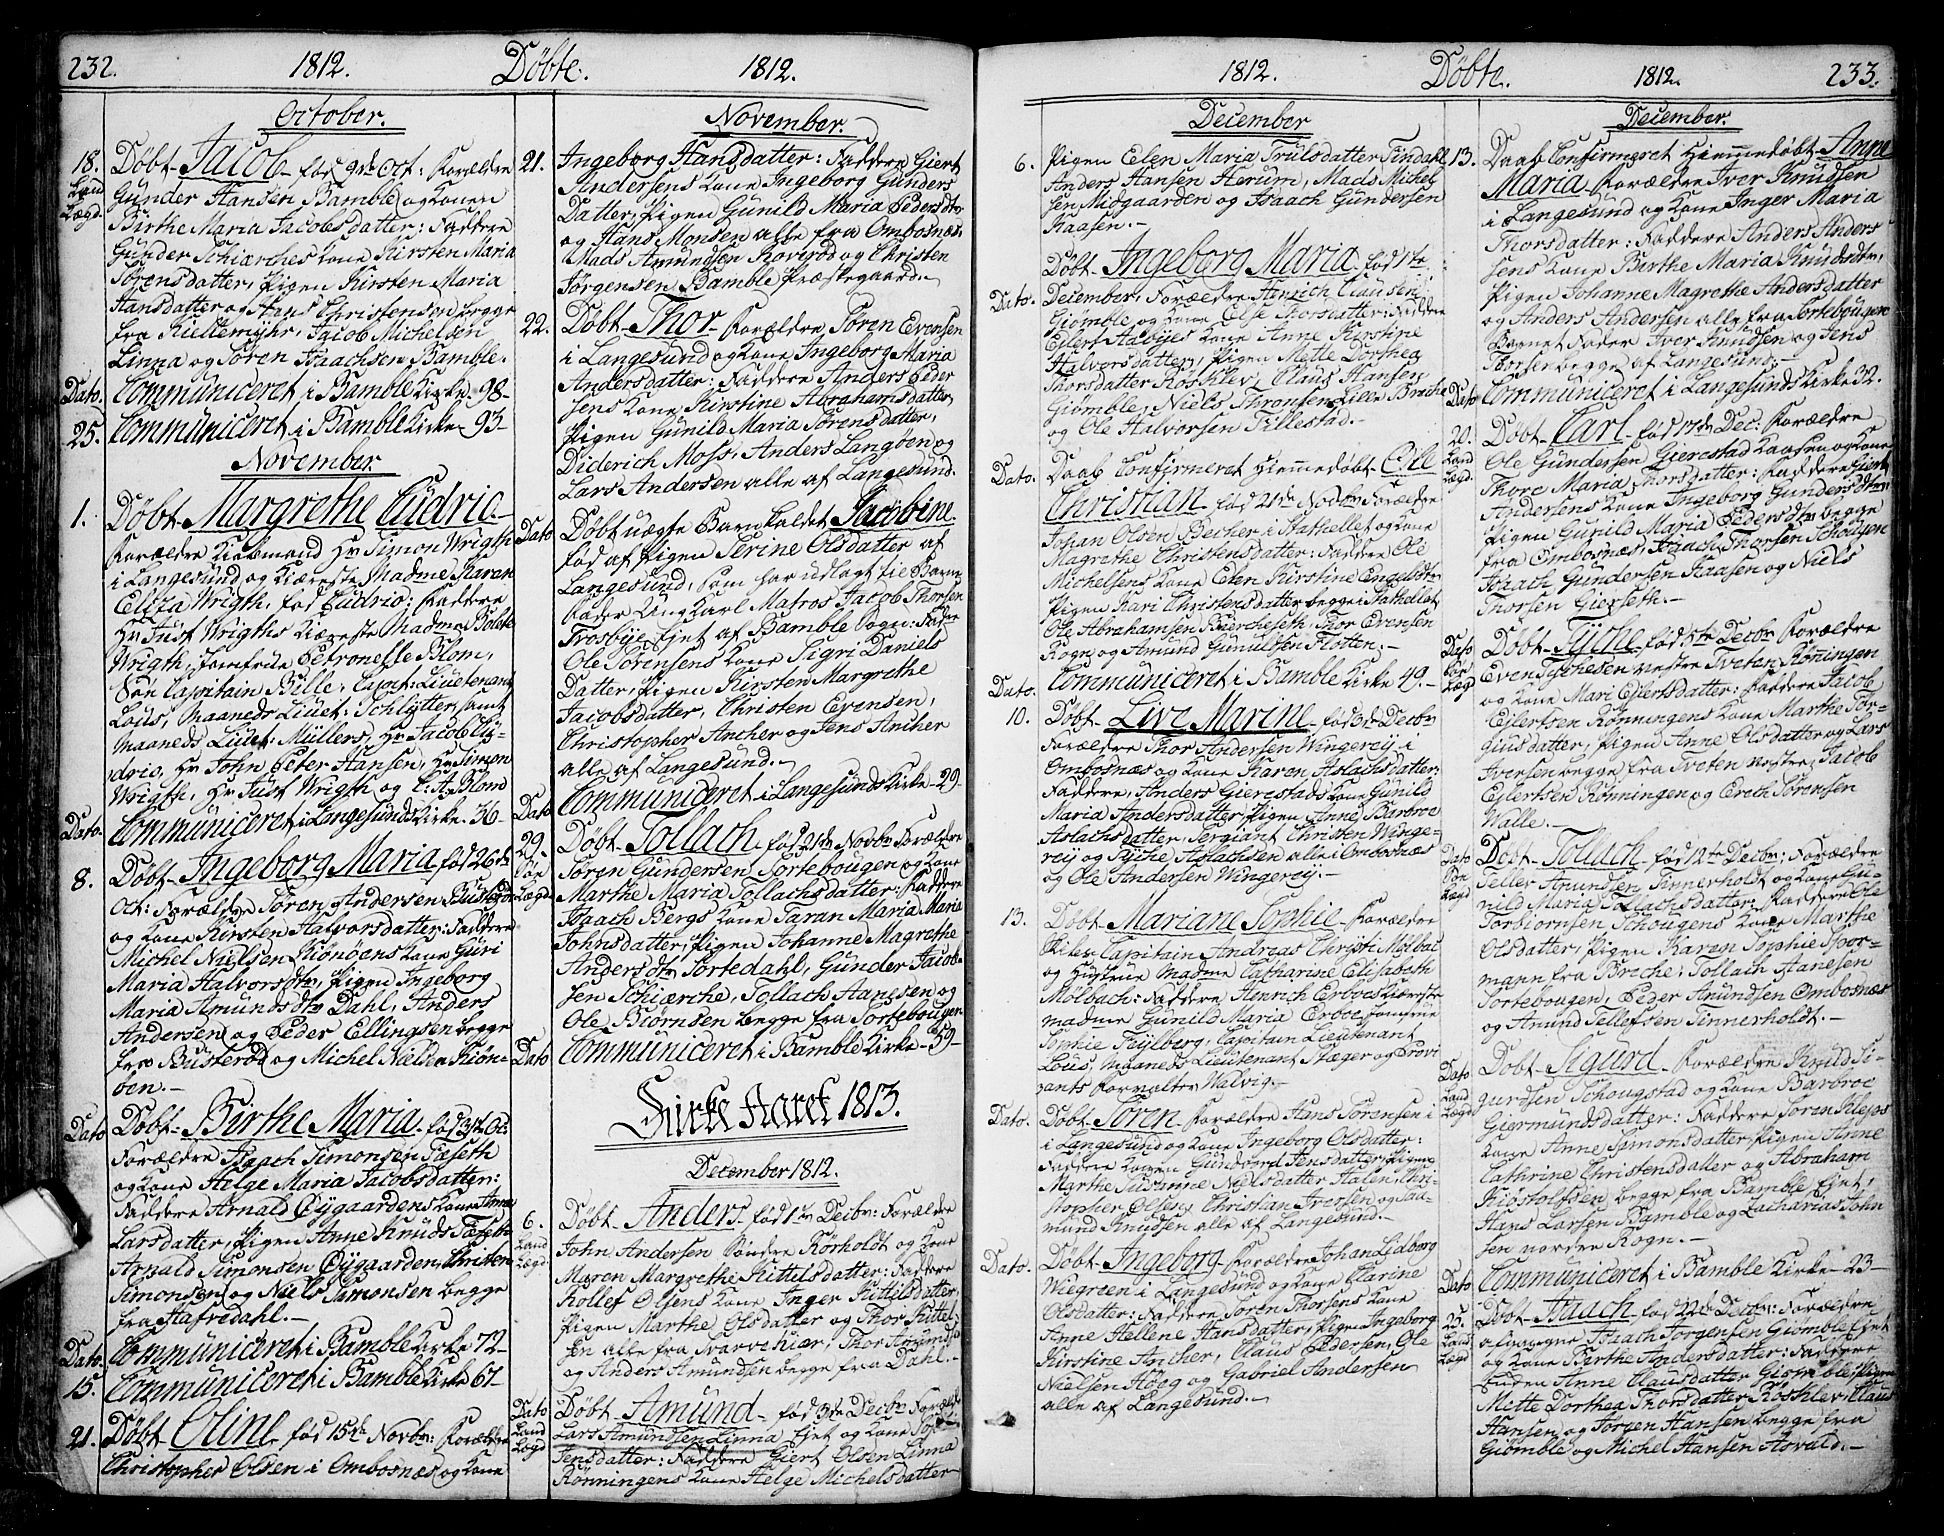 232. 1812. Döbte. 1812.
October.
18. Döbt Jacob fød 9de Oct: Forældre
Land Gunder Hansen Bamble og konen
Lægd. Birthe Maria Jacobsdatter: Faddere
Gunder Schierches kone Kirsten Maria
Sørensdatter, Pigen Kirsten Maria
Hansdatter og Hans Christensen begge
fra Kullemyhr, Jacob Michelsen
Linna og Søren Isaachsen Bamble.
Dato. Communiceret i Bamble Kirke 98
25. Communiceret i Bamble Kirke 93
November.
1. Döbt Margrethe Cudrio.
Forældre Kiøbmand Hr Simon Wrigth
i Langesund og Kiæreste Madme Karen
Eliza Wrigth, fød Cudrio: Faddere
Hr Just Wrigths Kiæreste Madme Bolete
Wrigth, Jomfrue Petronelle Blom,
Søn Capitain Bille, Capit: Lieutenant
Lous, Maaneds Lieut: Schlytter, samt
Maaneds Lieut: Müllers, Hr Jacob Cu-
drio, Hr John Peter Hansen, Hr Simon
Wrigth, Hr Just Wrigth og C: A: Blom
Dato. Communiceret i Langesunds Kirke 36
8. Döbt Ingeborg Maria fød 26de
Oct: Forældre Søren Andersen Busterød
og kone Kirsten Halvorsdatter: Faddere
Michel Nielsen Kiönöens kone Guri
Maria Halvorsdtr, Pigen Ingeborg
Maria Amundsdtr Dahl, Anders
Andersen og Peder Ellingsen begge
fra Busterød og Michel Nielsen Kiön-
öen.
Dato Döbt Birthe Maria fød 31te Oct:
Forældre Isaach Simonsen Sæseth
og kone Helge Maria Jacobsdatter:
Faddere Arnald Öygaardens kone Anne
Larsdatter, Pigen Anne Knuds Sæseth
Arnald Simonsen Öygaarden, Christen
Simonsen og Niels Simonsen begge
fra Hafredahl.
Dato. Communiceret i Bamble Kirke 72
15. Communiceret i Bamble Kirke 67
21. Döbt Oline fød 15de Novbr: Forældre
Christopher Olsen i Ombosnæs og kone
November.
21. Ingeborg Hansdatter: Faddere Giert
Andersens kone Ingeborg Gunders
Datter, Pigen Gunild Maria Pedersdtr
og Hans Monsen alle fra Ombosnæs
Mads Amundsen Rovigrød og Christen
Jörgensen Bamble Præstegaarde
22. Döbt Thor Forældre Sören Evensen
i Langesund og kone Ingeborg Maria
Andersdatter: Faddere Anders Peder
sens kone Kirstine Abrahamsdatter,
Pigen Gunild Maria Sörensdatter,
Diderich Moss, Anders Langöen og
Lars Andersen alle af Langesund.
Dato Döbt uægte Barn kaldet Jacobine
fød af Pigen Serine Olsdatter af
Langesund, som har udlagt til Barne
fader Ung Karl Matros Jacob Thorsen
Trosbye Ejet af Bamble Sogn: Faddere
Ole Sörensens kone Sigri Daniels
Datter, Pigen Kirsten Margrethe
Jacobsdatter, Christen Evensen,
Christopher Ancher og Jens Ancher
alle af Langesund.
Dato Communiceret i Langesunds Kirke 29
29. Döbt Tollach fød 21de Novbr Forældre
Sör Sören Gundersen Sortebougen og kone
Lægd Marthe Maria Tollachsdatter: Faddere
Isaach Bergs kone Taran Maria Marie
Johnsdatter, Pigen Johanne Magrethe
Andersdtr Sortedahl, Gunder Jacob-
sen Schierche, Tollach Hansen og
Ole Biörnsen begge fra Sortebougen
Dato Communiceret i Bamble Kirke 59
Kirke Aaret 1813.
December 1812.
6. Döbt Anders fød 1te Decbr: Forældre
Land John Andersen Söndre Rörholdt og kone
Lægd. Maren Margrethe Kittelsdatter: Faddere
Rollef Olsens kone Inger Kittelsdatter,
Pigen Marthe Olsdatter og Thor Kittel-
sen alle fra Svarvekiær, Thor Amunds
og Anders Amundsen begge fra Dahl.
Dato Döbt Amund fød 3de Decbr Forældre
Land Lars Amundsen Linna Ejet og kone
Lægd Jensdatter: Faddere Giert Olsen Linna
Rönningens kone Helge Michelsdatter
1812. Döbte. 1812. 233.
December
6. Pigen Elen Maria Trulsdatter Findahl
Anders Hansen Herum, Mads Michel
sen Midgaarden og Isaach Gundersen
Kaasen.
Döbt Ingeborg Maria fød 1te
Dito. December, Forældre Henrich Clausen
Giömble og kone Else Thorsdatter: Faddere
Eilert Aabyes kone Anne Kirstine
Halvorsdatter, Pigen Mette Dorthea
Thorsdatter Röschlev, Claus Hansen
Giömble, Niels Thronsen Lille Breche
og Ole Halvorsen Tillestad.
Dato. Daab Confirmeret Hiemmedöbt Cill
Christian fød 21de Novbr Forældre
Johan Olsen Becher i Stathellet og kone
Magrethe Christensdatter: Faddere Ole
Michelsens kone Elen Kirstine Engelsdtr
Pigen Kari Christensdatter begge i Stathellet
Ole Abrahamsen Buercheseth Thor Evensen
Rogn og Amund Gunulfsen Flotten.
Dato. Communiceret i Bamble Kirke 49.
10. Döbt Live Marine fød 6de Decbr
Forældre Thor Andersen Wingereij i
Ombosnæs og kone Karen Aslachsdatter:
Faddere, Anders Gierestads kone Gunild
Maria Andersdatter, Pigen Anne Barbroe
Aslachsdatter, Sergiant Christen Winge-
reij og Tyche Aslachsen alle i Ombosnæs
og Ole Andersen Wingereij.
13. Döbt Mariane Sophie Forældre
Capitain Andreas Christi Mölbac
og Hustrue Madme Catharine Elisabeth
Mölbach: Faddere Henrich Erboes Kiæreste
Madme Gunild Maria Erboe, Jomfrue
Sophie Feylberg, Capitain Lieutenant
Lous, Maaneds Lieutenant Stæger og Provi
ants Forvalter Walvig.
Dato. Döbt Sören Forældre Hans Sörensen i
i Langesund og kone Ingeborg Olsdatter:
Faddere konen Gundvord Jensdatter, Pigen
Marthe Susanne Nielsdatter Halen, Chri-
stopher Olsen, Christian Iversen og Saa-
mund Knudsen alle af Langesund.
Dato. Döbt Ingeborg Forældre Johan Lidborg
Wiegreen i Langesund og kone Clarine
Olsdatter: Faddere Sören Thorsens kone
Anne Hellene Hansdatter, Pigen Ingeborg
Kirstine Ancher, Claus Pedersen, Ole
Nielsen Höeg og Gabriel Andersen
alle af Langesund.
December.
13. Daab Confirmeret Hiemmedöbt Anne
Maria Forældre Iver Knudsen
i Langesund og kone Inger Maria
Thorsdatter: Faddere Anders Anders
sens kone Birthe Maria Knudsdtr,
Pigen Johanne Magrethe Andersdatter
og Anders Andersen alle fra Sortebougen
Barnet Fader Iver Knudsen og Jens
Thorsen begge af Langesund.
Dato Communiceret i Langesunds Kirke 32.
20. Döbt Carl fød 17de Dec: Forældre
Land Ole Gundersen Gierestad Kaasen og kone
Lægd. Thore Maria Thorsdatter: Faddere Giert
Andersens kone Ingeborg Gundersdtr,
Pigen Gunild Maria Pedersdtr begge
fra Ombosnæs, Isaach Thorsen Schougen
Isaach Gundersen Kaasen og Niels
Thorsen Gierseth.
Dato Döbt Tyche fød 5te Decbr Forældre
Sör Even Tychesen vestre Tveten Röningen
Lægd og kone Mari Ejlertsdatter: Faddere Jacob
Ejlertsen Rönningens kone Marthe Tor-
giusdatter, Pigen Anne Olsdatter og Lars
Iversen begge fra Tveten vestre, Jacob
Ejlertsen Rönningen og Erich Sörensen
Walle.
Dato Döbt Tollach fød 12te Decbr: Forældre
Sön Tellef Amundsen Tinnerholdt og kone Gu-
Lægd nild Maria Tollachsdatter: Faddere Ole
Torbiörnsen Schougens kone Marthe
Olsdatter, Pigen Karen Sophie Spor-
mann fra Breche, Tollach Hansen
Sortebougen, Peder Amundsen Ombosnæs
og Amund Tellefsen Tinnerholdt.
Dato Döbt Sigurd Forældre Knud Si-
Land gurdsen Schougstad og kone Barbroe
Lægd Giermundsdatter: Faddere Sören Kleps
kone Anne Simonsdatter, Pigen Anne
Cathrine Christensdatter og Abraham
Kiöstolfsen begge fra Bamble Ejet,
Hans Larsen Bamble og Zacharias John
sen nordre Rogn.
Dato Communiceret i Bamble Kirke 23
25. Döbt Isaach fød 22de Decbr: Forældre
Land Isaach Jörgensen Giömble Ejet
Lægd og kone Birthe Andersdatter: Faddere
Anne Clausdatter Giömble, Pigen
Mette Dorthea Thorsdatter Röschlev, Claus
Hansen og Jörgen Hansen begge fra
Giömble og Michel Hansen Aavald.